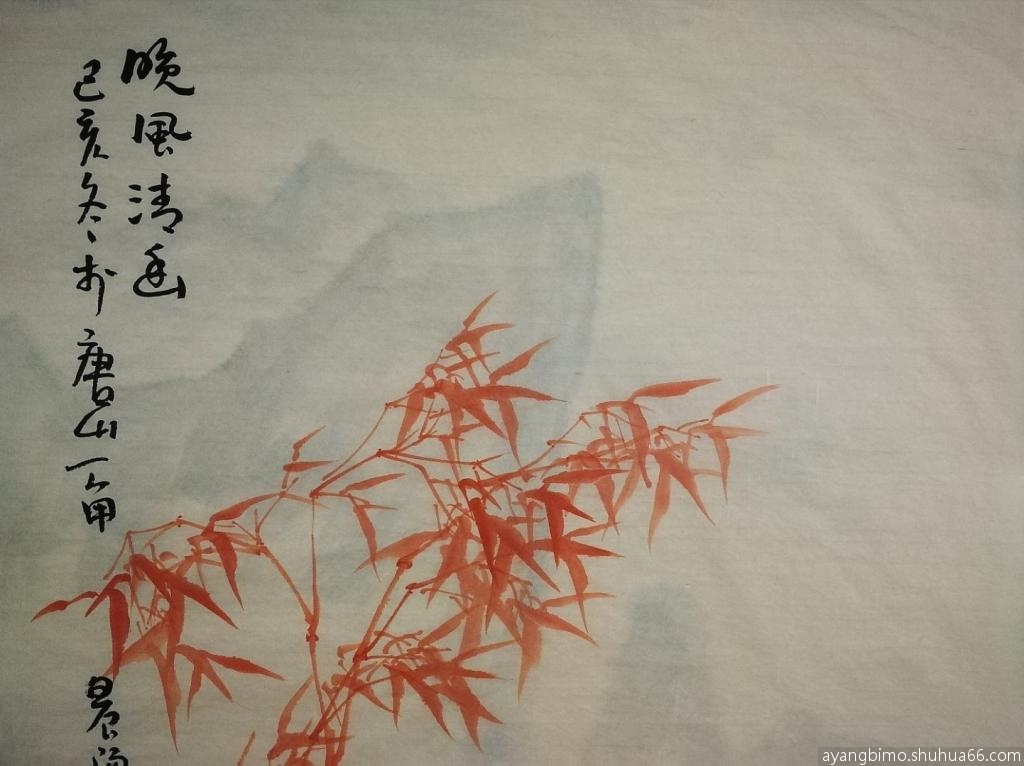 晚风清幽
己亥冬于唐山一角
晨
ayangbimo.shuhua66.com